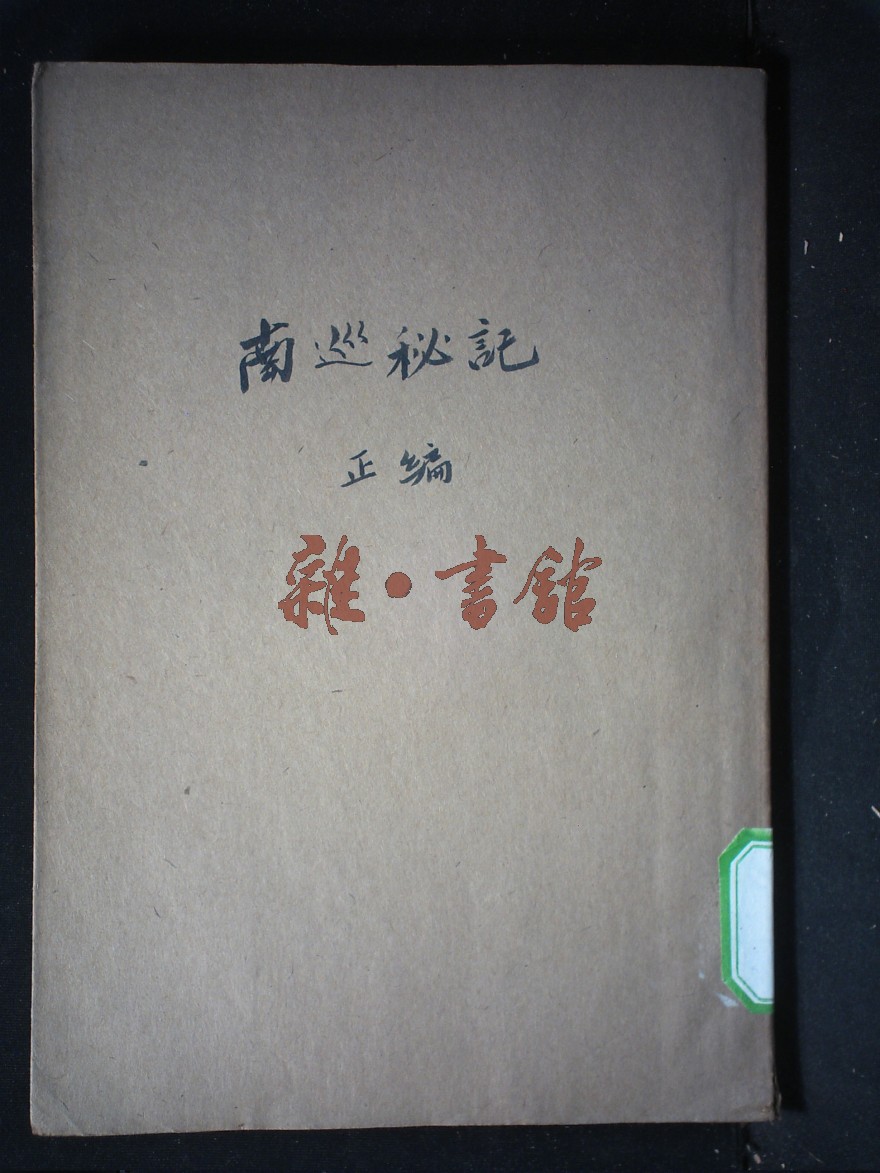 南巡秘記
正編
雜·書館